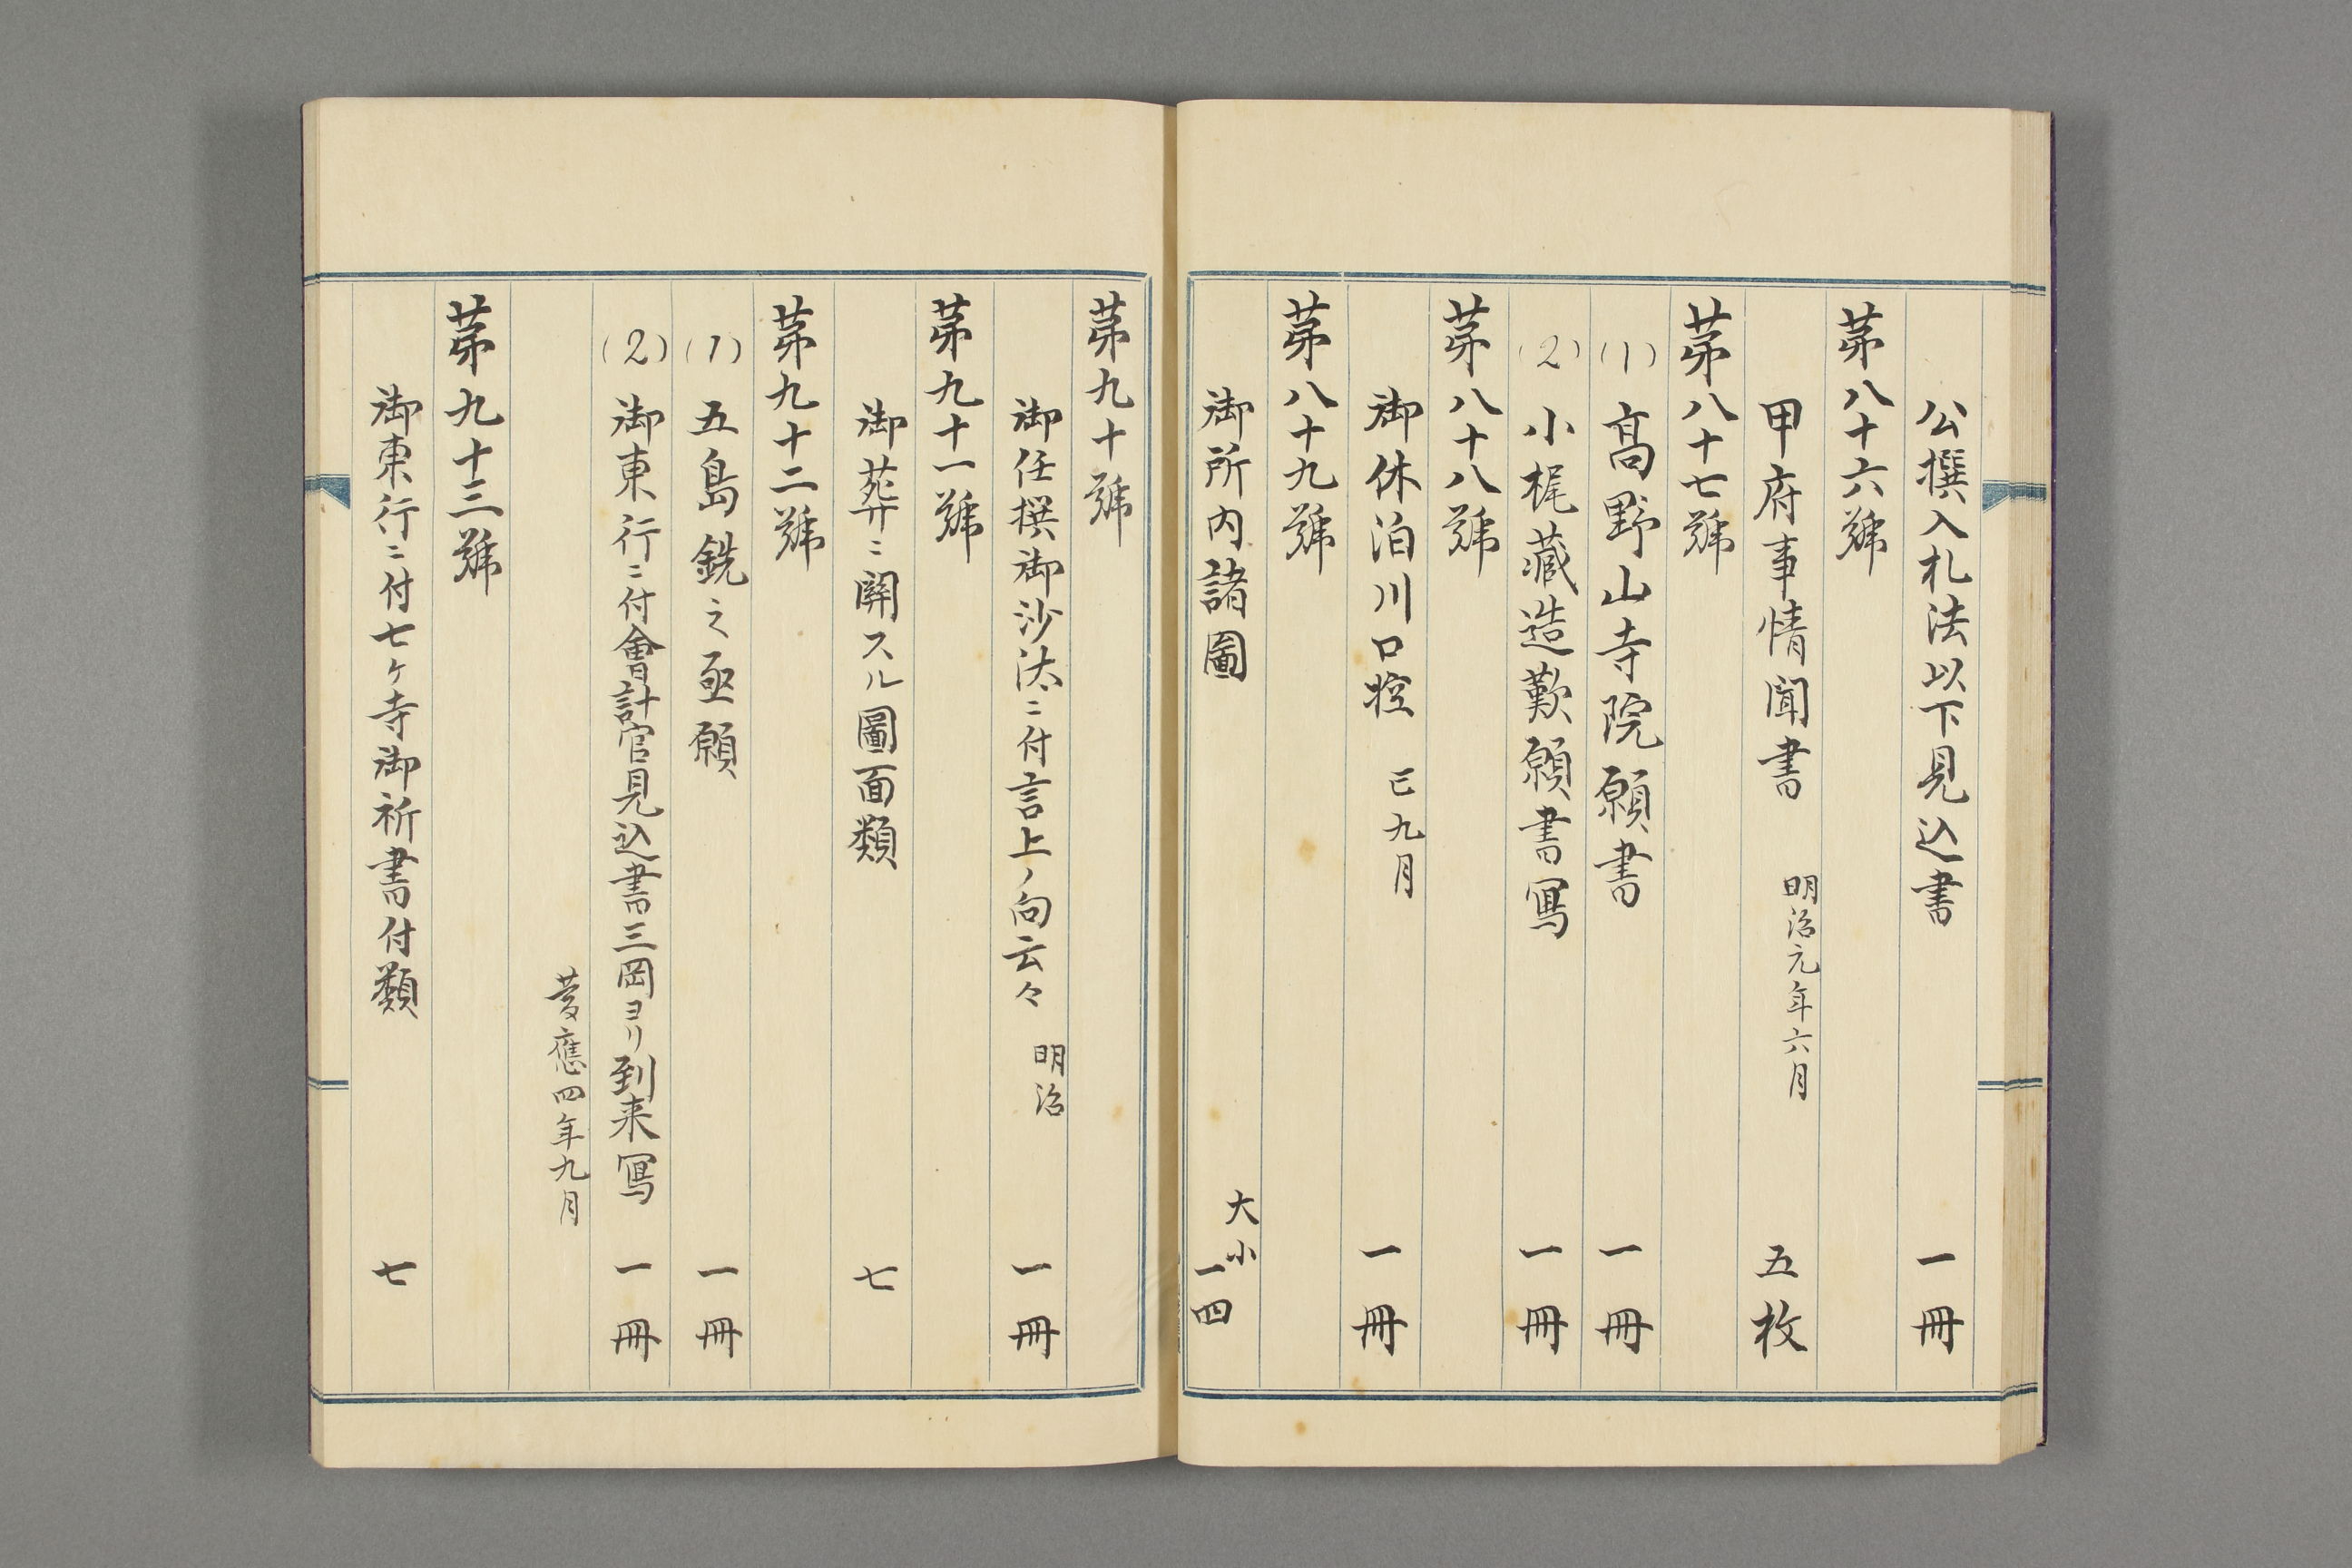 公撰入札法以下見込書 一冊
第八十六號
甲府事情聞書 明治元年六月 五枚
第八十七號
(1) 高野山寺院願書 一冊
(2) 小梶藏造歎願書寫 一冊
第八十八號
御休泊川口控 巳九月 一冊
第八十九號
御所内諸圖 大小一四
第九十號
御任撰御沙汰ニ付言上ノ向云々 明治 一冊
第九十一號
御葬ニ関スル圖面類 七
第九十二號
(1) 五島銑之亟願 一冊
(2) 御東行ニ付會計官見込書三岡ヨリ到来寫 一冊
慶應四年九月
第九十三號
御東行ニ付七ヶ寺御祈書付類 七